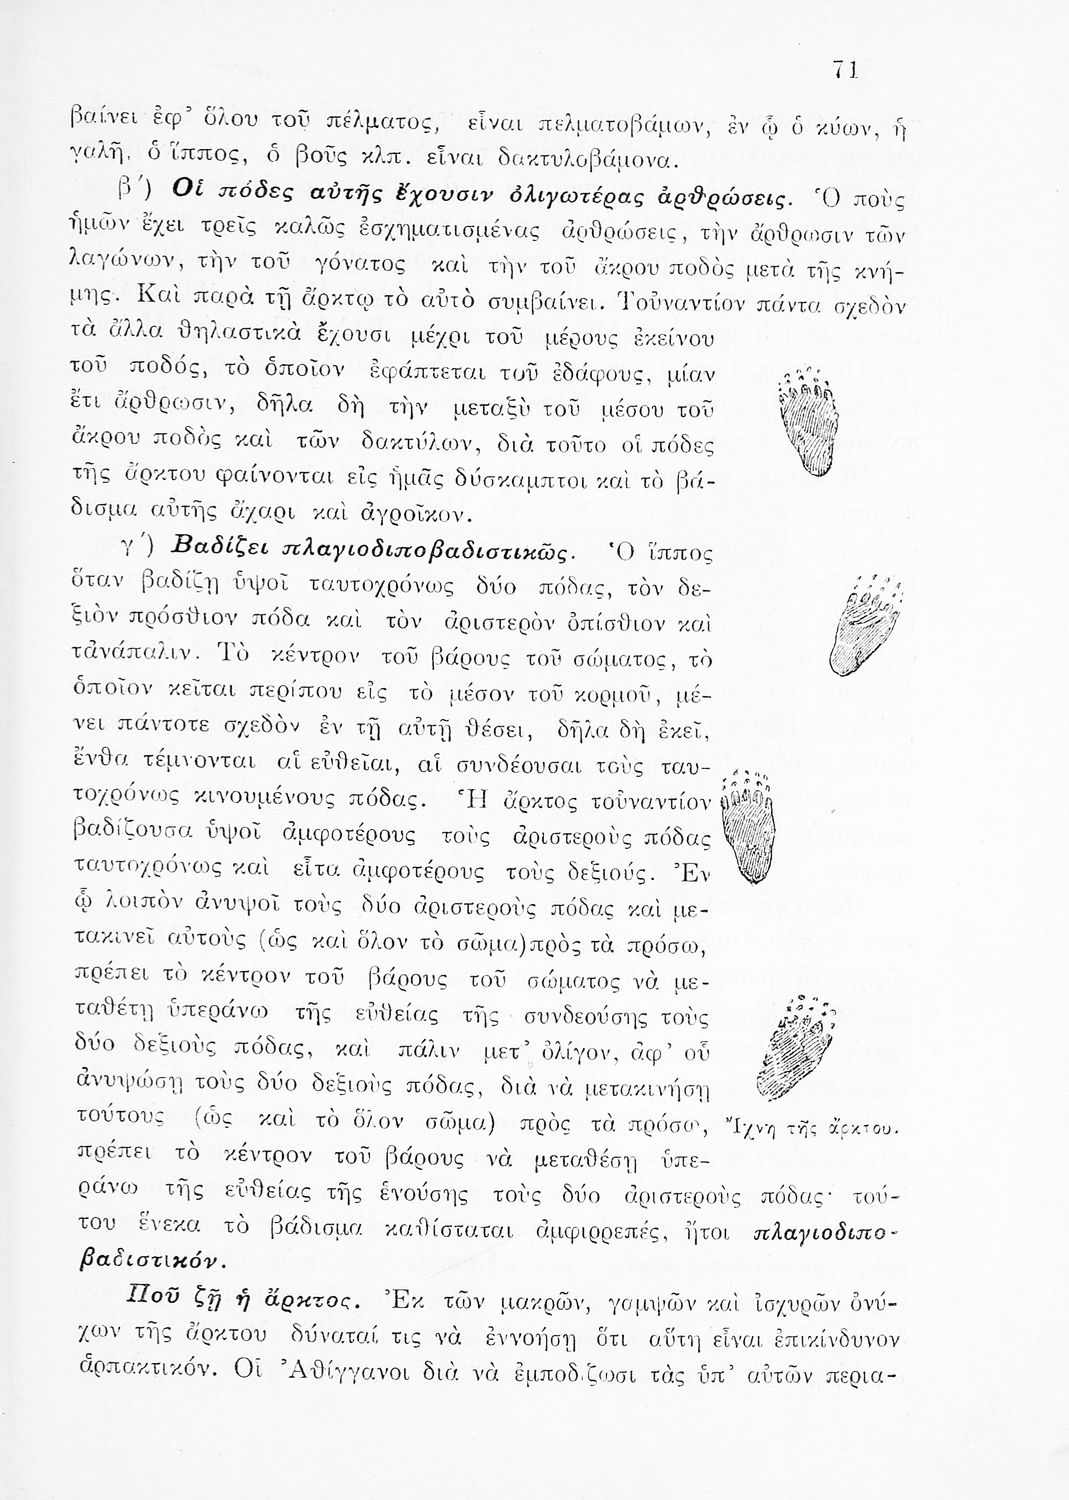 71
βαίνει ἐφ’ ὅλου τοῦ πέλματος, εἶναι πελματοβάμων, ἐν ᾧ ὁ κύων, ἡ
γαλῆ, ὁ ἵππος, ὁ βοῦς κλπ. εἶναι δακτυλοβάμονα.
β΄) Οἱ πόδες αὐτῆς ἔχουσιν ὀλιγωτέρας ἀρθρώσεις. Ὁ ποὺς
ἡμῶν ἔχει τρεῖς καλῶς ἐσχηματισμένας ἀρθρώσεις, τὴν ἄρθρωσιν τῶν
λαγώνων, τὴν τοῦ γόνατος καὶ τὴν τοῦ ἄκρου ποδὸς μετὰ τῆς κνή-
μης. Καὶ παρὰ τῇ ἄρκτῳ τὸ αὐτὸ συμβαίνει. Τοὐναντίον πάντα σχεδὸν
τὰ ἄλλα θηλαστικὰ ἔχουσι μέχρι τοῦ μέρους ἐκείνου
τοῦ ποδός, τὸ ὁποῖον ἐφάπτεται τοῦ ἐδάφους, μίαν
ἔτι ἄρθρωσιν, δῆλα δὴ τὴν μεταξὺ τοῦ μέσου τοῦ
ἄκρου ποδὸς καὶ τῶν δακτύλων, διὰ τοῦτο οἱ πόδες
τῆς ἄρκτου φαίνονται εἰς ἡμᾶς δύσκαμπτοι καὶ τὸ βά-
δισμα αὐτῆς ἄχαρι καὶ ἀγροῖκον.
γ΄) Βαδίζει πλαγιοδιποβαδιστικῶς. Ὁ ἵππος
ὅταν βαδίζῃ ὑψοῖ ταυτοχρόνως δύο πόδας, τὸν δε-
ξιὸν πρόσθιον πόδα καὶ τὸν ἀριστερὸν ὀπίσθιον καὶ
τἀνάπαλιν. Τὸ κέντρον τοῦ βάρους τοῦ σώματος, τὸ
ὁποῖον κεῖται περίπου εἰς τὸ μέσον τοῦ κορμοῦ, μέ-
νει πάντοτε σχεδὸν ἐν τῇ αὐτῇ θέσει, δῆλα δὴ ἐκεῖ,
ἔνθα τέμνονται αἱ εὐθεῖαι, αἱ συνδέουσαι τοὺς ταυ-
τοχρόνως κινουμένους πόδας. Ἡ ἄρκτος τοὐναντίον
βαδίζουσα ὑψοῖ ἀμφοτέρους τοὺς ἀριστεροὺς πόδας
ταυτοχρόνως καὶ εἶτα ἀμφοτέρους τοὺς δεξιούς. Ἐν
ᾧ λοιπὸν ἀνυψοῖ τοὺς δύο ἀριστεροὺς πόδας καὶ με-
τακινεῖ αὐτοὺς (ὡς καὶ ὅλον τὸ σῶμα)πρὸς τὰ πρόσω,
πρέπει τὸ κέντρον τοῦ βάρους τοῦ σώματος νὰ με-
ταθέτῃ ὑπεράνω τῆς εὐθείας τῆς συνδεούσης τοὺς
δύο δεξιοὺς πόδας, καὶ πάλιν μετ’ ὀλίγον, ἀφ’ οὗ
ἀνυψώσῃ τοὺς δύο δεξιοὺς πόδας, διὰ νὰ μετακινήσῃ
τούτους (ὡς καὶ τὸ ὅλον σῶμα) πρὸς τὰ πρόσω,
Ἴχνη τῆς ἄρκτου.
πρέπει τὸ κέντρον τοῦ βάρους νὰ μεταθέσῃ ὑπε-
ράνω τῆς εὐθείας τῆς ἑνούσης τοὺς δύο ἀριστεροὺς πόδας· τού-
του ἕνεκα τὸ βάδισμα καθίσταται ἀμφιρρεπές, ἤτοι πλαγιοδιπο-
βαδιστικόν.
Ποῦ ζῇ ἡ ἄρκτος. Ἐκ τῶν μακρῶν, γαμψῶν καὶ ἰσχυρῶν ὀνύ-
χων τῆς ἄρκτου δύναταί τις νὰ ἐννοήσῃ ὅτι αὕτη εἶναι ἐπικίνδυνον
ἁρπακτικόν. Οἱ Ἀθίγγανοι διὰ νὰ ἐμποδίζωσι τὰς ὑπ’ αὐτῶν περια-